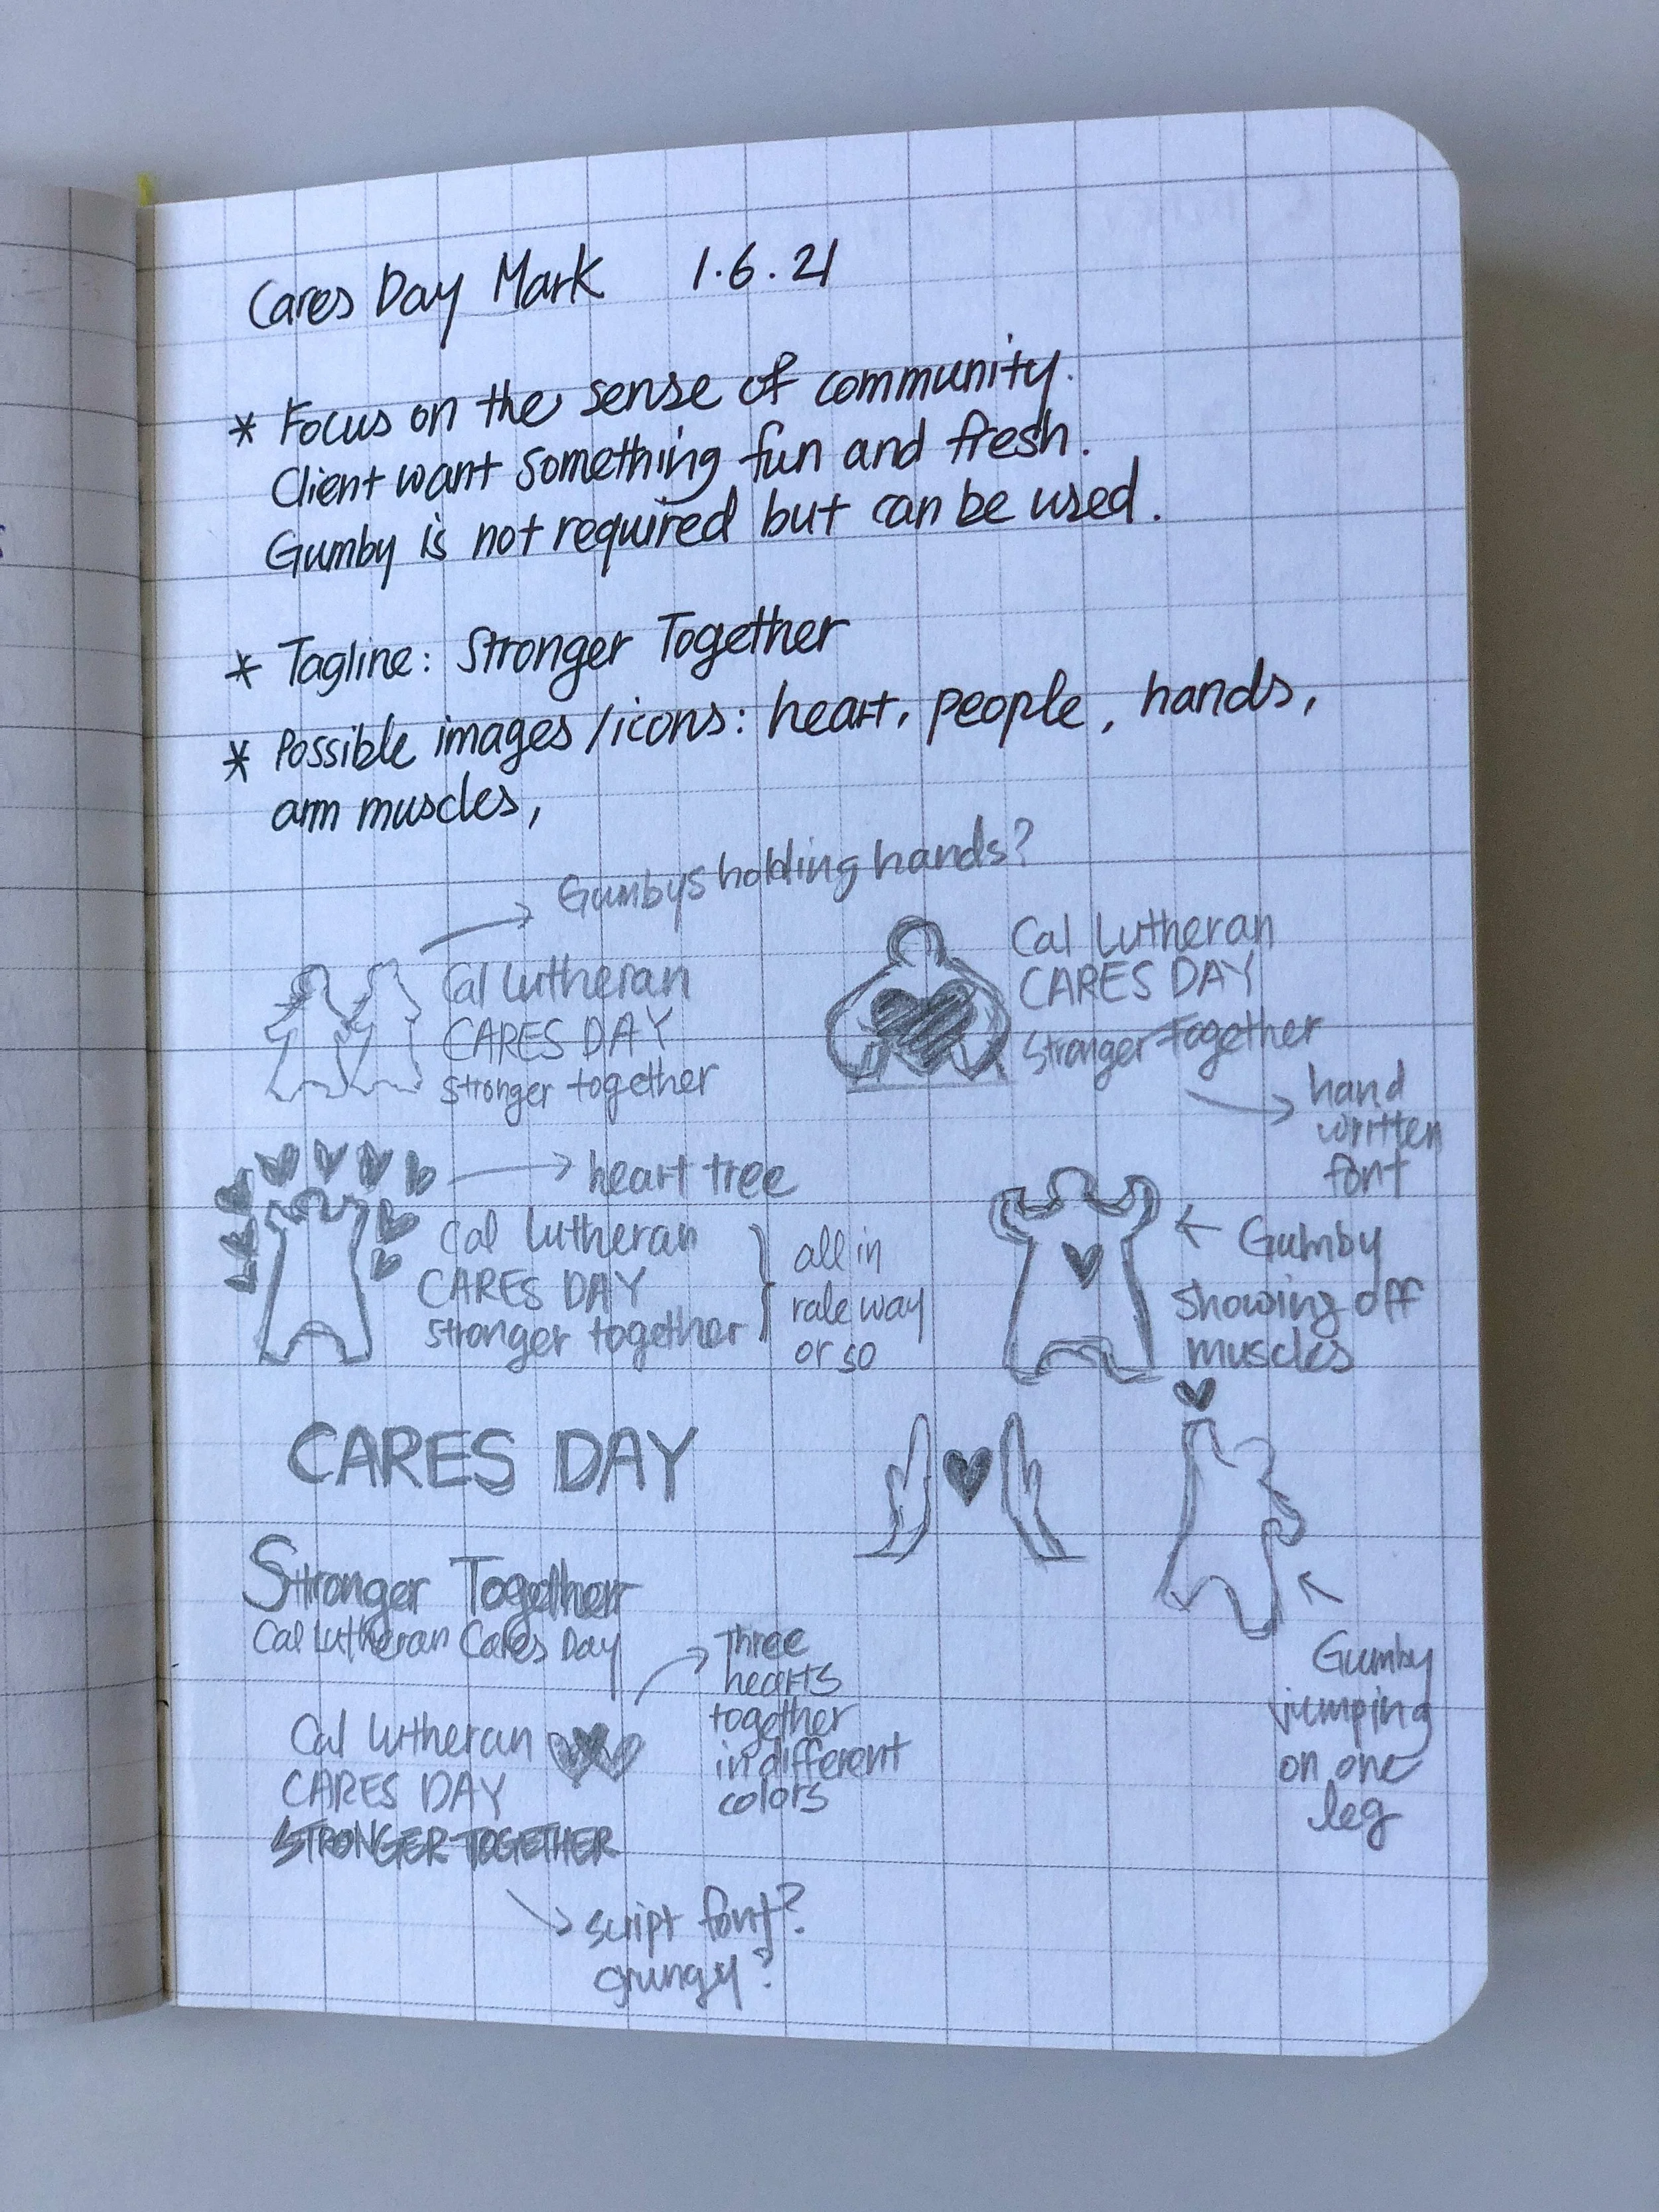 Cares Day Mark 1.6.21
* Focus on the sense of community.
Client want something fun and fresh.
Gumby is not required but can be used.
* Tagline: Stronger Together
* Possible images/icons: heart, people, hands,
arm muscles,
Gumbys holding hands?
Cal Lutheran
CARES DAY
stronger together
Cal Lutheran
CARES DAY
Stronger Together
hand
written
font
heart tree
Cal Lutheran
CARES DAY
stronger together
all in
raleway
or so
Gumby
showing off
muscles
CARES DAY
Stronger Together
Cal Lutheran Cares Day
Gumby
jumping
on one
leg
Three
hearts
together
in different
colors
Cal Lutheran
CARES DAY
STRONGER TOGETHER
script font?
grungy?